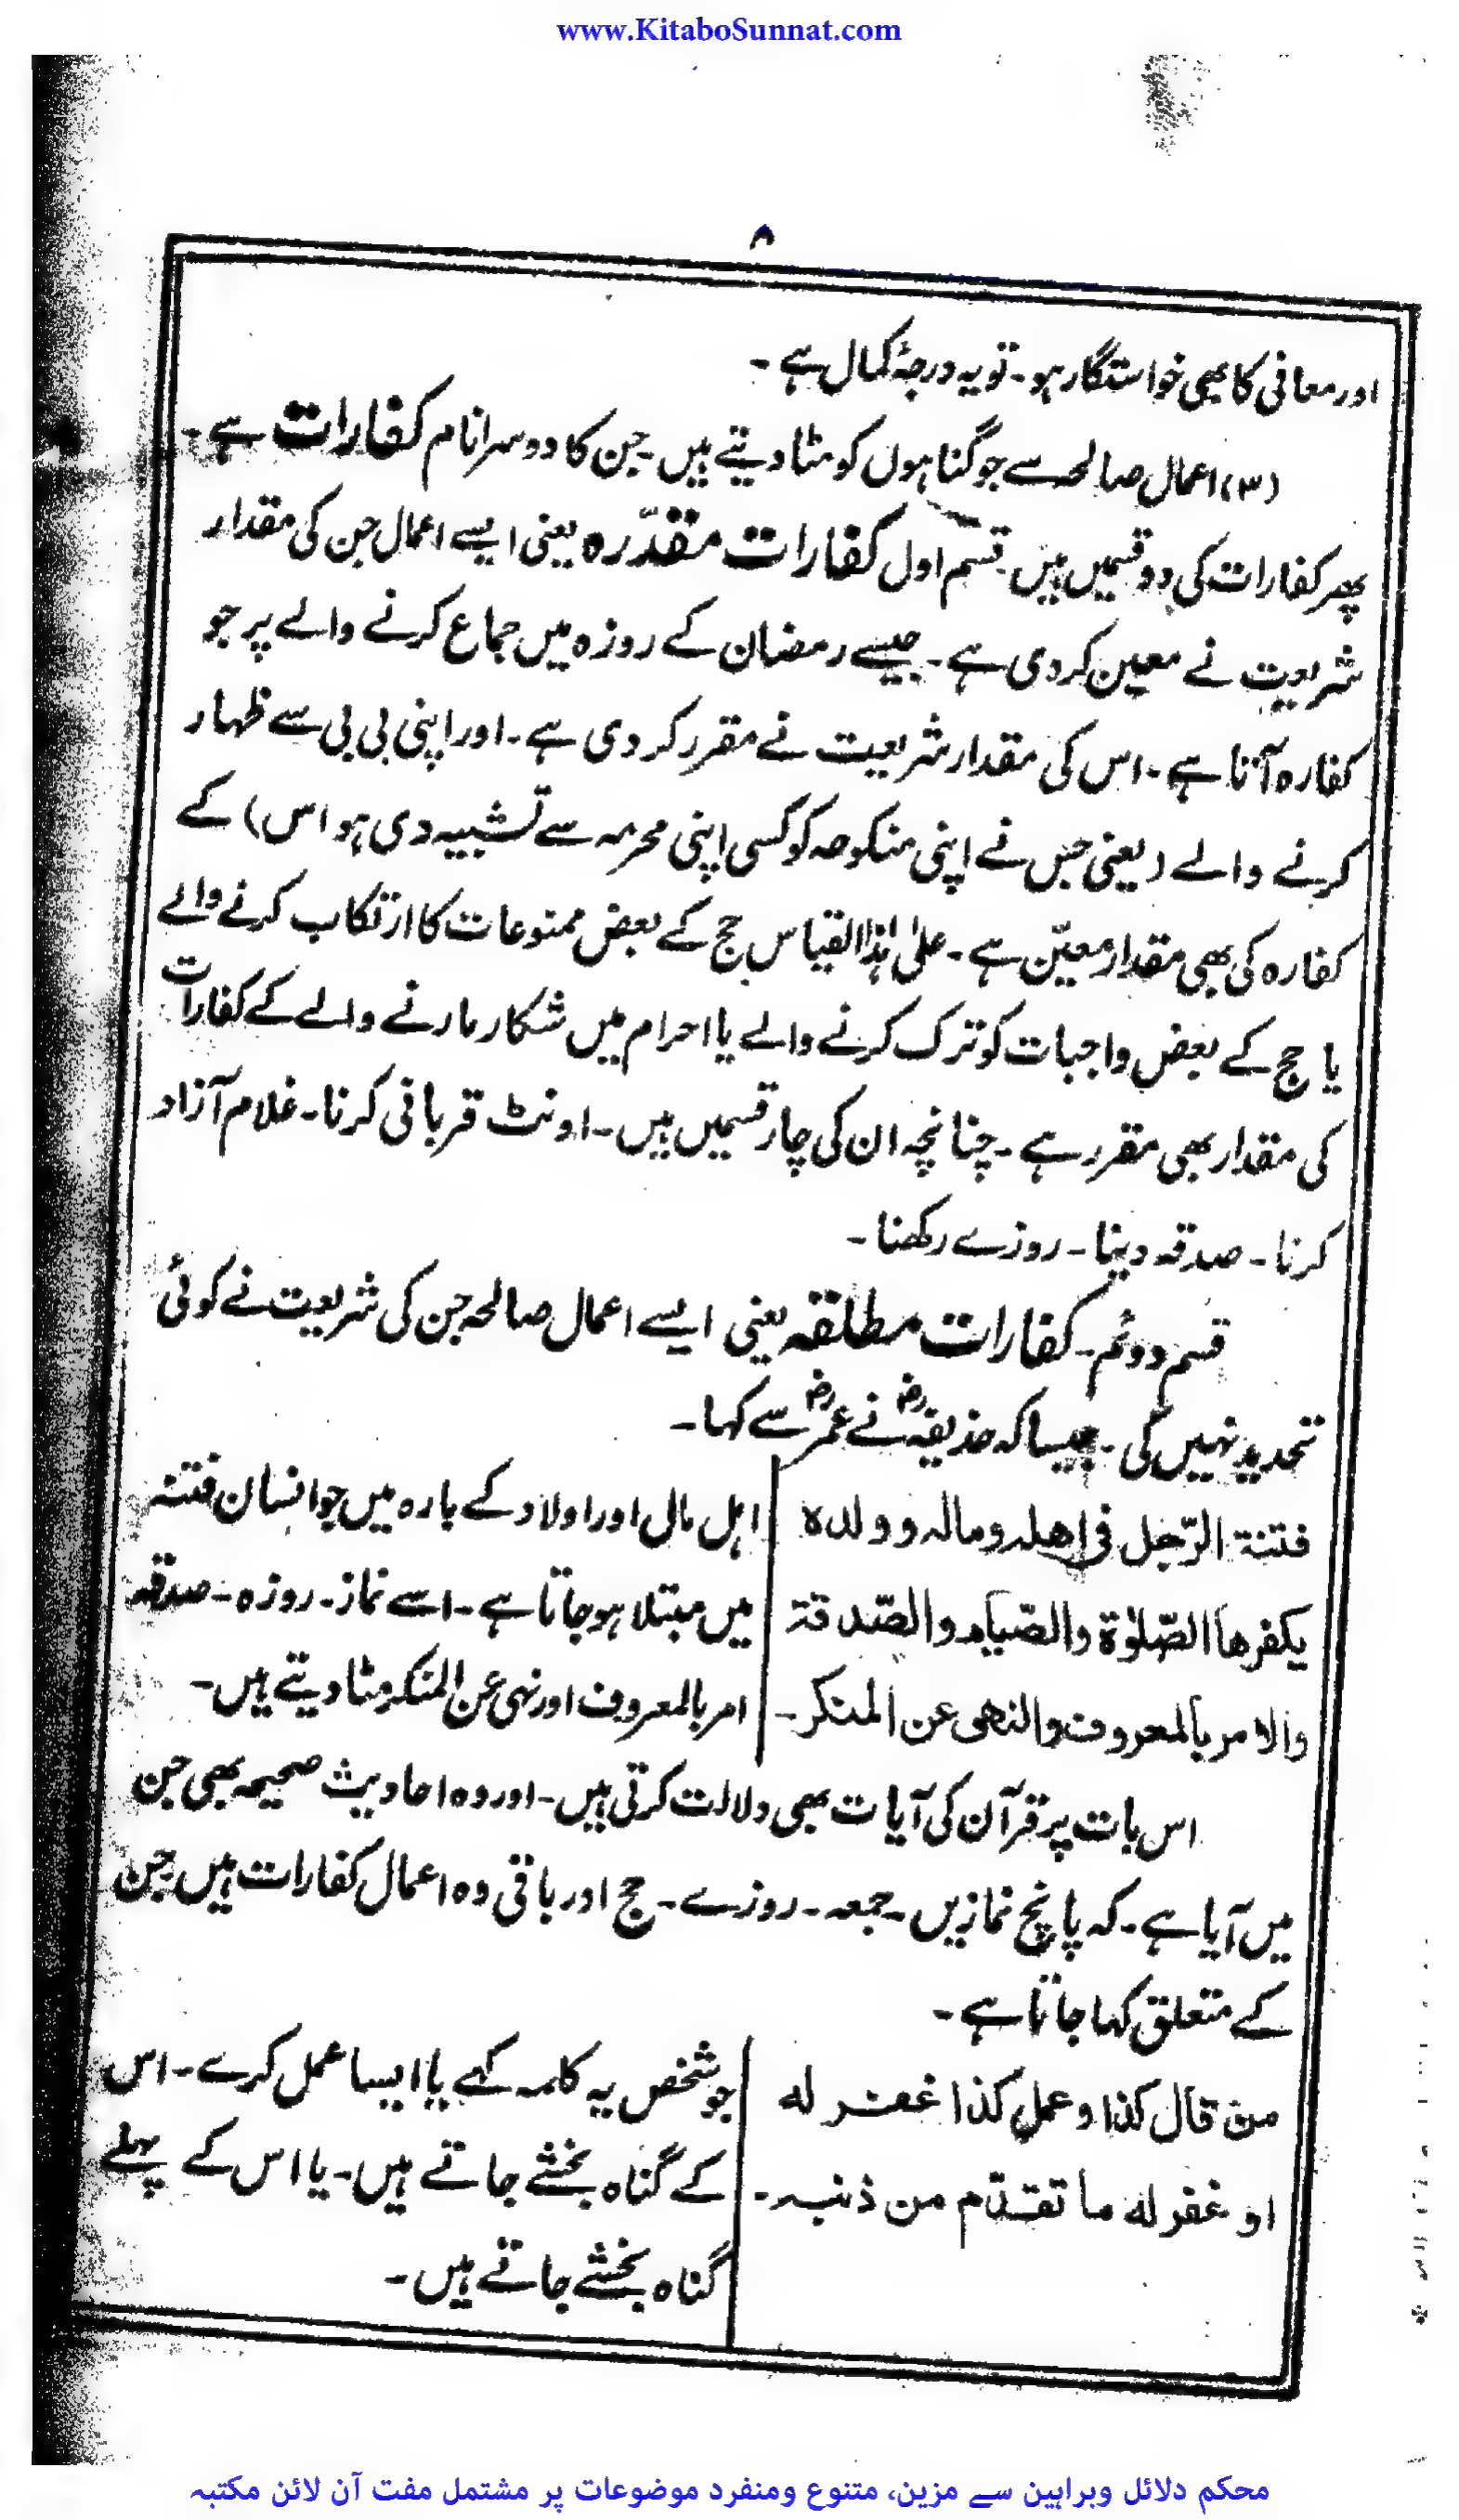 www.KitaboSunnat.com
۸
اور معافی کا بھی خواستگار ہو۔ تو یہ درجۂ کمال ہے۔
(۳) اعمال صالحہ سے جو گناہوں کو مٹا دیتے ہیں۔ جن کا دوسرا نام کفارات ہے۔
پھر کفارات کی دو قسمیں ہیں۔ قسم اول کفارات مقدّرہ یعنی ایسے اعمال جن کی مقدار
شریعت نے معین کر دی ہے۔ جیسے رمضان کے روزہ میں جماع کرنے والے پر جو
کفارہ آتا ہے۔ اس کی مقدار شریعت نے مقرر کر دی ہے۔ اور اپنی بی بی سے ظہار
کرنے والے (یعنی جس نے اپنی منکوحہ کو کسی اپنی محرمہ سے تشبیہ دی ہو اس) کے
کفارہ کی بھی مقدار معیّن ہے۔ علیٰ ہٰذا القیاس حج کے بعض ممنوعات کا ارتکاب کرنے والے
یا حج کے بعض واجبات کو ترک کرنے والے یا احرام میں شکار مارنے والے کے کفارات
کی مقدار بھی مقرر ہے۔ چنانچہ ان کی چار قسمیں ہیں۔ اونٹ قربانی کرنا۔ غلام آزاد
کرنا۔ صدقہ دینا۔ روزے رکھنا۔
قسم دوئم۔ کفارات مطلقہ یعنی ایسے اعمال صالحہ جن کی شریعت نے کوئی
تحدید نہیں کی۔ جیسا کہ حذیفہؓ نے عمرؓ سے کہا۔
فتنۃ الرّجل فی اھلہ ومالہ وولدہ
یکفرھا الصّلوٰۃ والصّیام والصّدقۃ
والامر بالمعروف والنھی عن المنکر۔
اہل مال اور اولاد کے بارہ میں جو انسان فتنہ
میں مبتلا ہو جاتا ہے۔ اسے نماز۔ روزہ۔ صدقہ
امر بالمعروف اور نہی عن المنکر مٹا دیتے ہیں۔
اس بات پر قرآن کی آیات بھی دلالت کرتی ہیں۔ اور وہ احادیث صحیحہ بھی جن
میں آیا ہے۔ کہ پانچ نمازیں۔ جمعہ۔ روزے۔ حج اور باقی وہ اعمال کفارات ہیں جن
کے متعلق کہا جاتا ہے۔
من قال کذا وعمل کذا غفر لہ
او غفر لہ ما تقدّم من ذنبہ۔
جو شخص یہ کلمہ کہے یا ایسا عمل کرے۔ اس
کے گناہ بخشے جاتے ہیں۔ یا اس کے پہلے
گناہ بخشے جاتے ہیں۔
محکم دلائل وبراہین سے مزین، متنوع ومنفرد موضوعات پر مشتمل مفت آن لائن مکتبہ